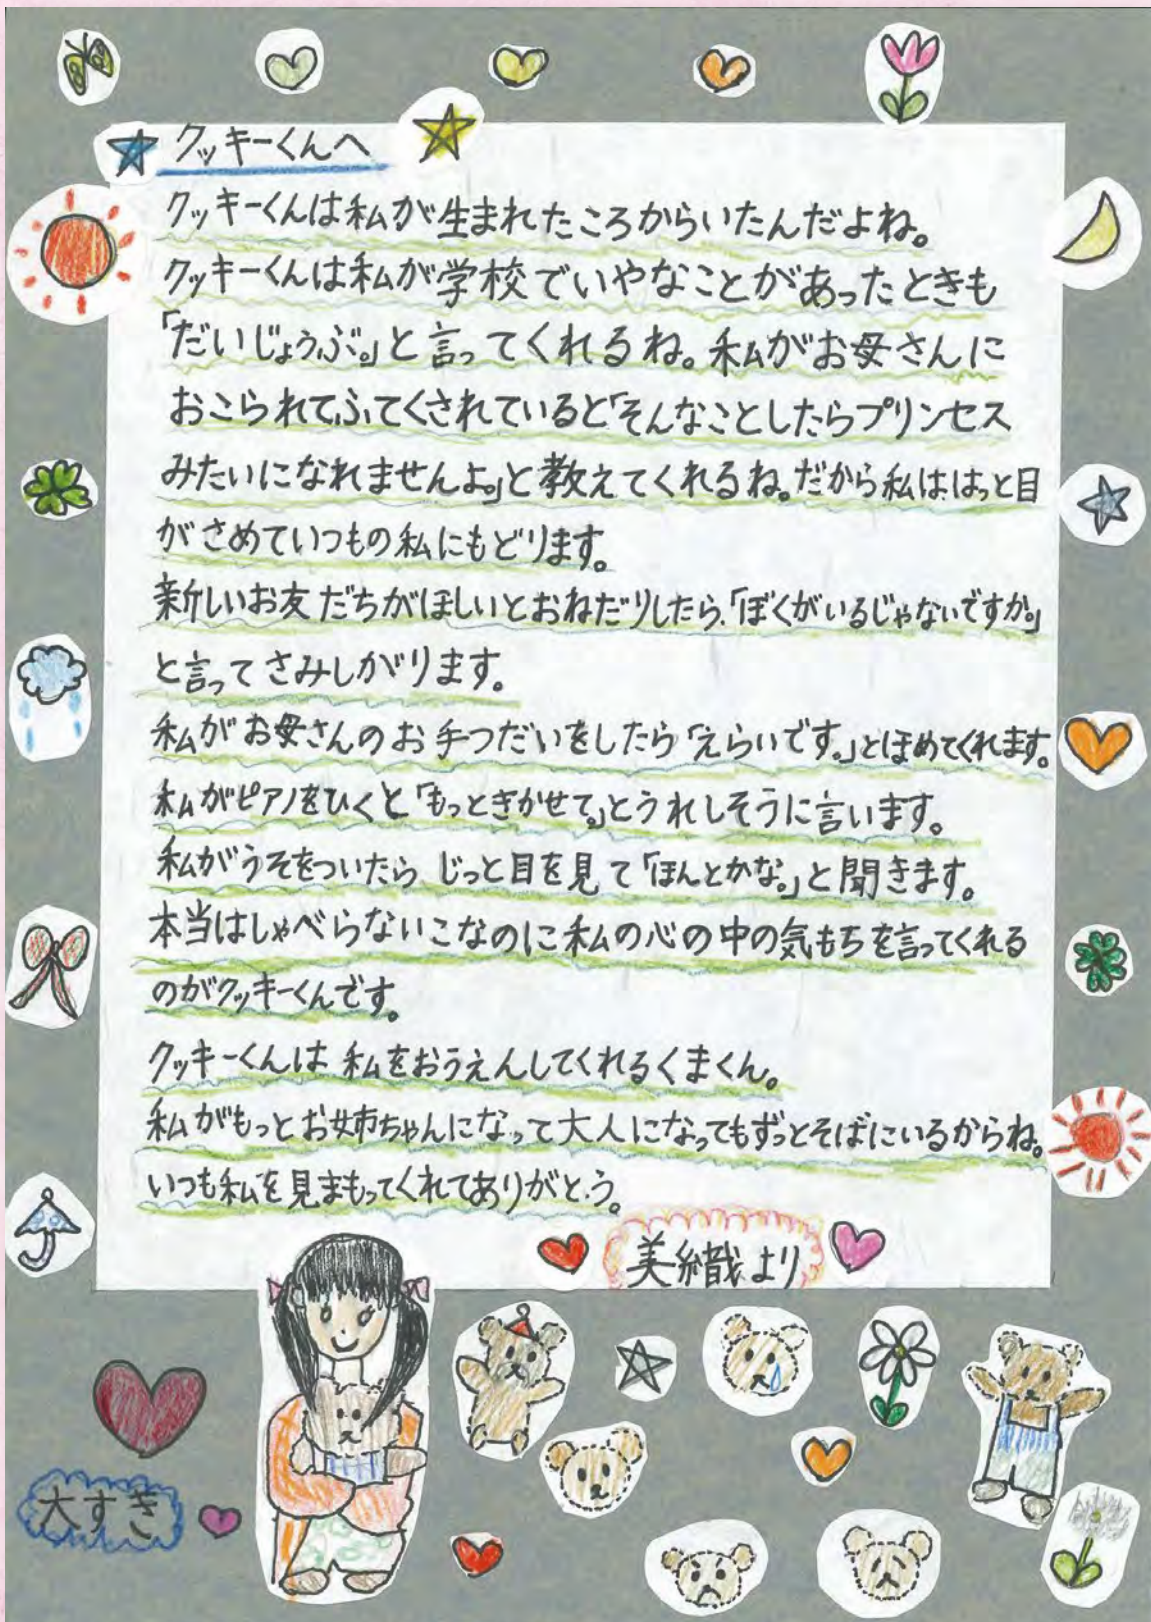 クッキーくんへ
クッキーくんは私が生まれたころからいたんだよね。
クッキーくんは私が学校でいやなことがあったときも
「だいじょうぶ。」と言ってくれるね。私がお母さんに
おこられてふてくされていると「そんなことしたらプリンセス
みたいになれませんよ。」と教えてくれるね。だから私ははっと目
がさめていつもの私にもどります。
新しいお友だちがほしいとおねだりしたら、「ぼくがいるじゃないですか。」
と言ってさみしがります。
私がお母さんのお手つだいをしたら「えらいです。」とほめてくれます。
私がピアノをひくと「もっときかせて。」とうれしそうに言います。
私がうそをついたら じっと目を見て「ほんとかな。」と聞きます。
本当はしゃべらないこなのに私の心の中の気もちを言ってくれる
のがクッキーくんです。
クッキーくんは 私をおうえんしてくれるくまくん。
私がもっとお姉ちゃんになって大人になってもずっとそばにいるからね。
いつも私を見まもってくれてありがとう。
美織より
大すき